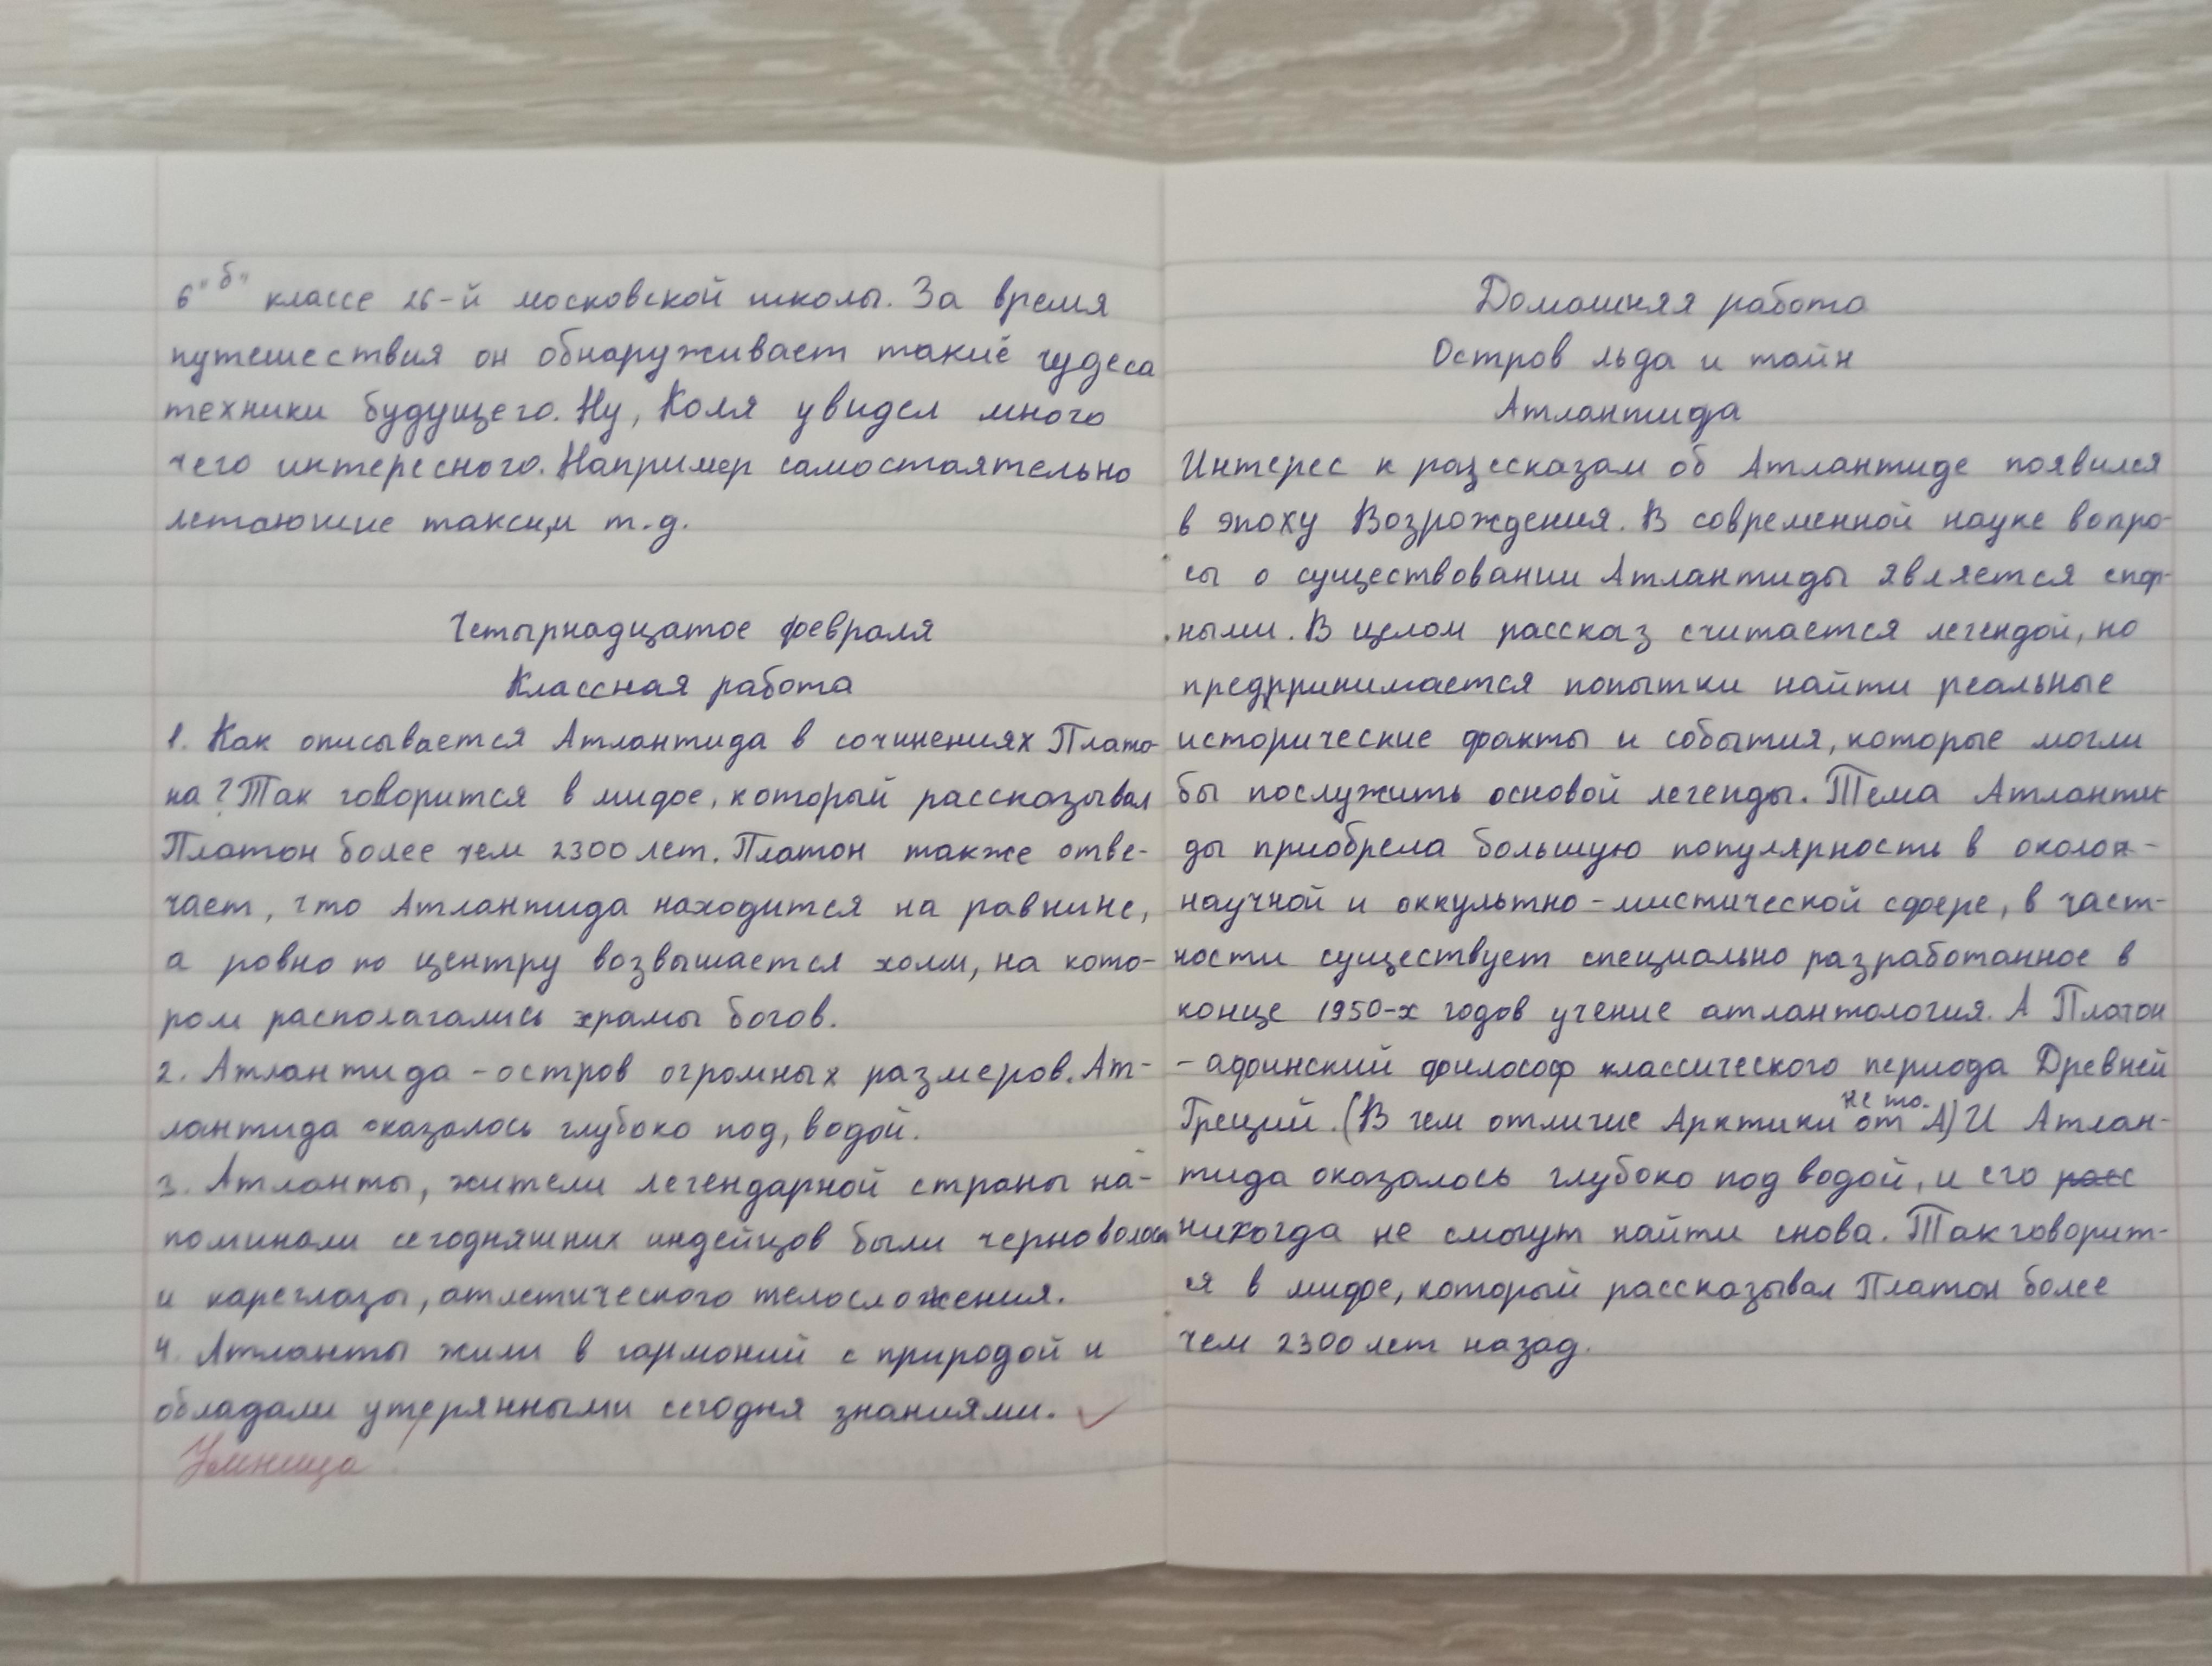 6"б" классе 26-й московской школы. За время
путешествия он обнаруживает такие чудеса
техники будущего. Ну, Коля увидел много
чего интересного. Например самостоятельно
летающие такси,и т.д.
Четырнадцатое февраля
Классная работа
1. Как описывается Атлантида в сочинениях Плато-
на? Так говорится в мифе, который рассказывал
Платон более чем 2300 лет. Платон также отве-
чает, что Атлантида находится на равнине,
а ровно по центру возвышается холм, на кото-
ром располагались храмы богов.
2. Атлантида - остров огромных размеров. Ат-
лантида оказалось глубоко под, водой.
3. Атланты, жители легендарной страны на-
поминали сегодняшних индейцов были черноволосы
и кареглазы, атлетического телосложения.
4. Атланты жили в гармоний с природой и
обладали утерянными сегодня знаниями.
Умница!
Домашняя работа
Остров льда и тайн
Атлантида
Интерес к разссказам об Атлантиде появился
в эпоху Возрождения. В современной науке вопро-
сы о существовании Атлантиды является спор-
ными. В целом рассказ считается легендой, но
предпринимается попытки найти реальные
исторические факты и события, которые могли
бы послужить основой легенды. Тема Атланти-
ды приобрела большую популярность в около-
научной и оккультно-мистической сфере, в част-
ности существует специально разработанное в
конце 1950-х годов учение атлантология. А Платон
- афинский философ классического периода Древней
Греций. (В чем отличие Арктики от А) не то. И Атлан-
тида оказалось глубоко под водой, и его расс
никогда не смогут найти снова. Так говорит-
ся в мифе, который рассказывал Платон более
чем 2300 лет назад.